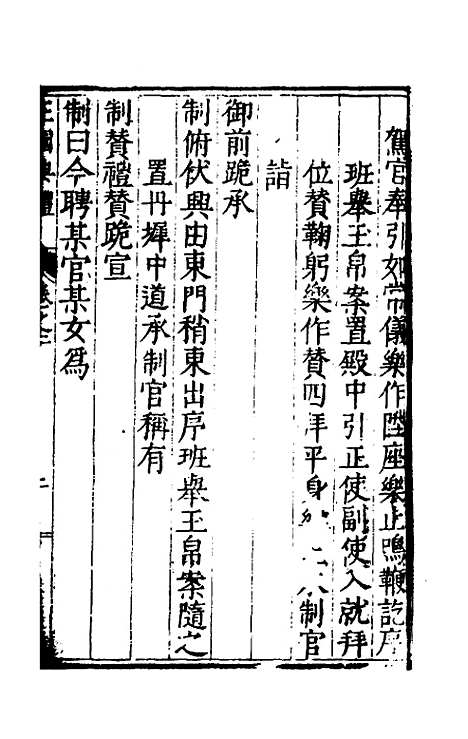 駕官奉引如常儀樂作陞座樂止鳴鞭訖序
班舉玉帛案置殿中引正使副使入就拜
位贊鞠躬樂作贊四拜平身 制官
詣
御前跪承
制俯伏興由東門稍東出序班舉玉帛案隨之
置丹墀中道承制官稱有
制贊禮贊跪宣
制曰今聘某官某女為
王國典禮